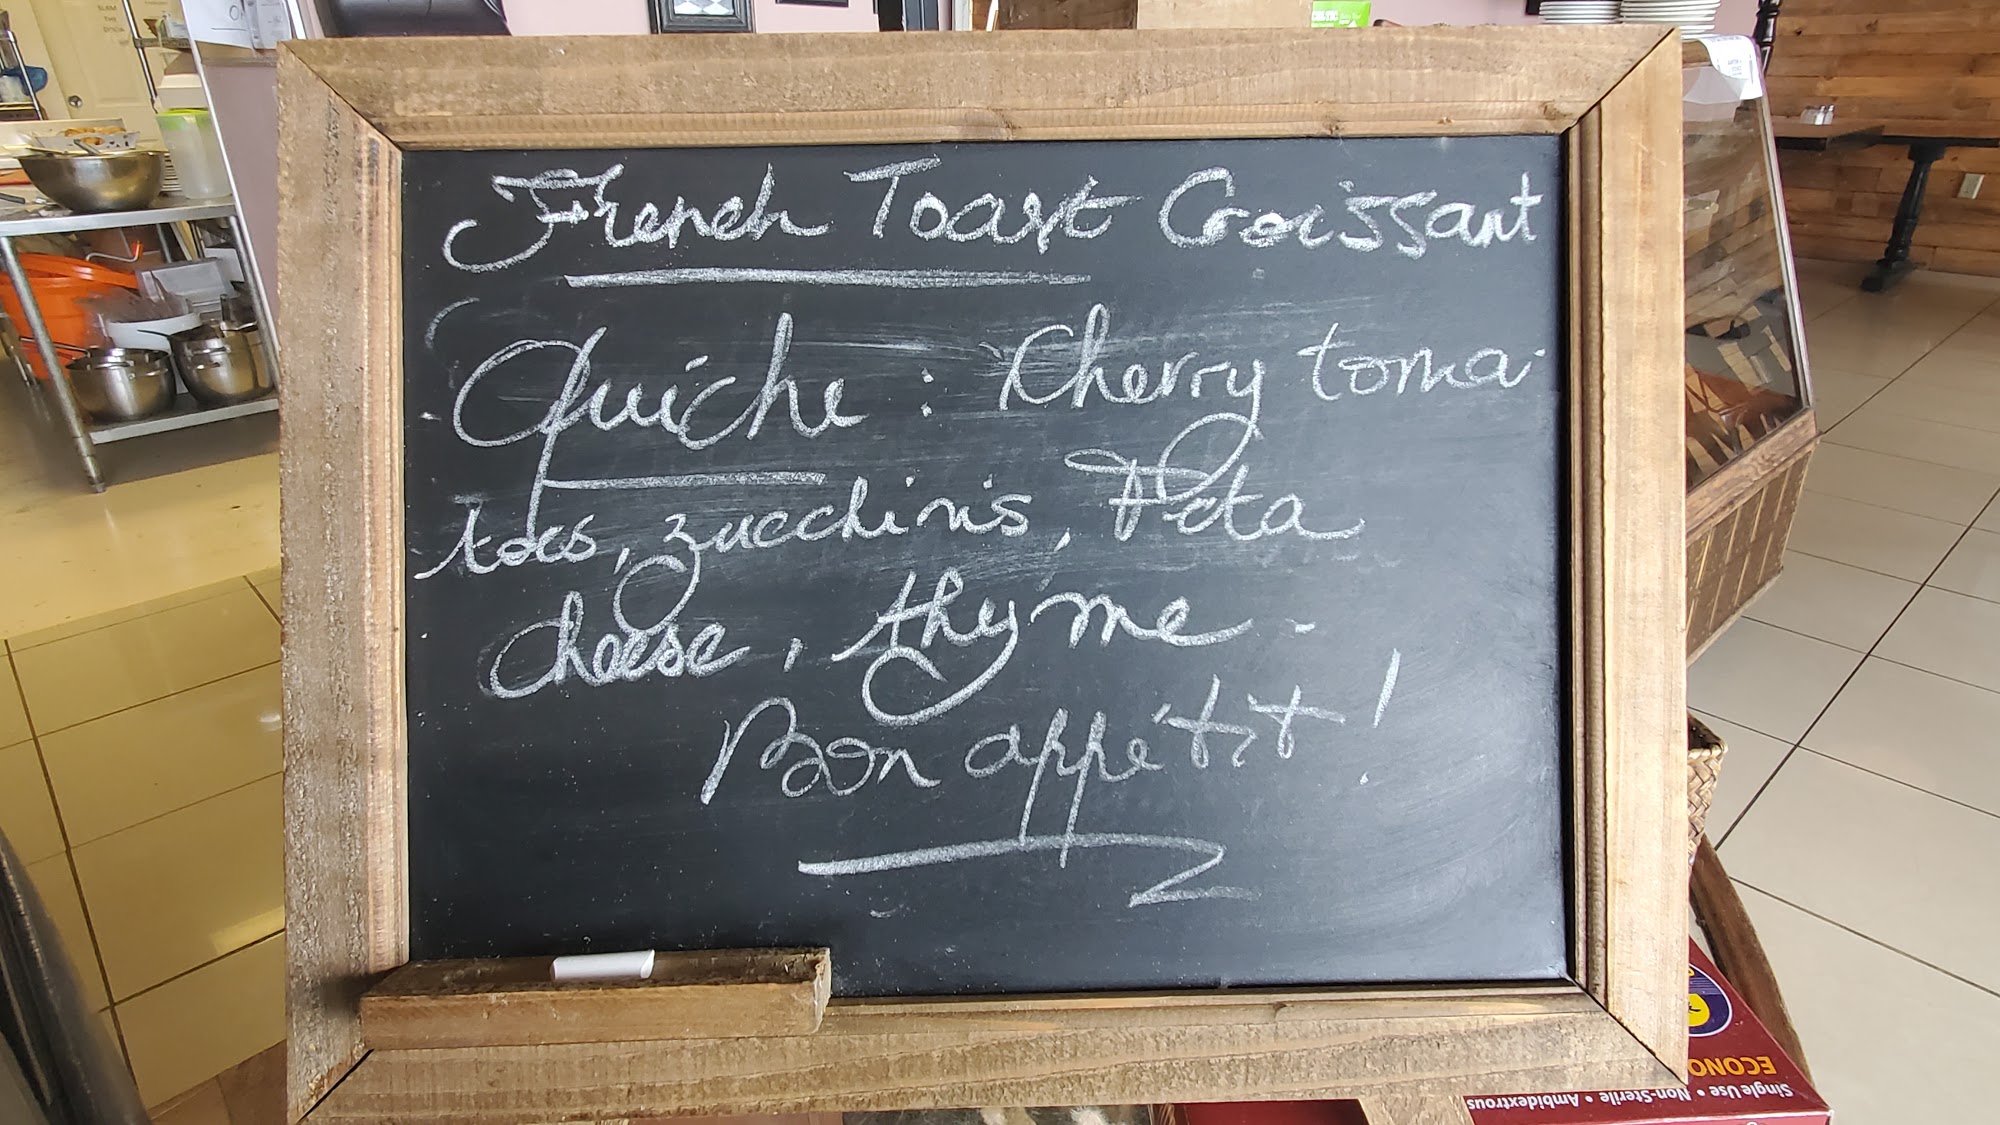 French Toast Croissant
Quiche : Cherry toma-
toes, zucchinis, Feta
cheese, thyme.
Bon appétit!
ECONO
Single Use • Non-Sterile • Ambidextrous